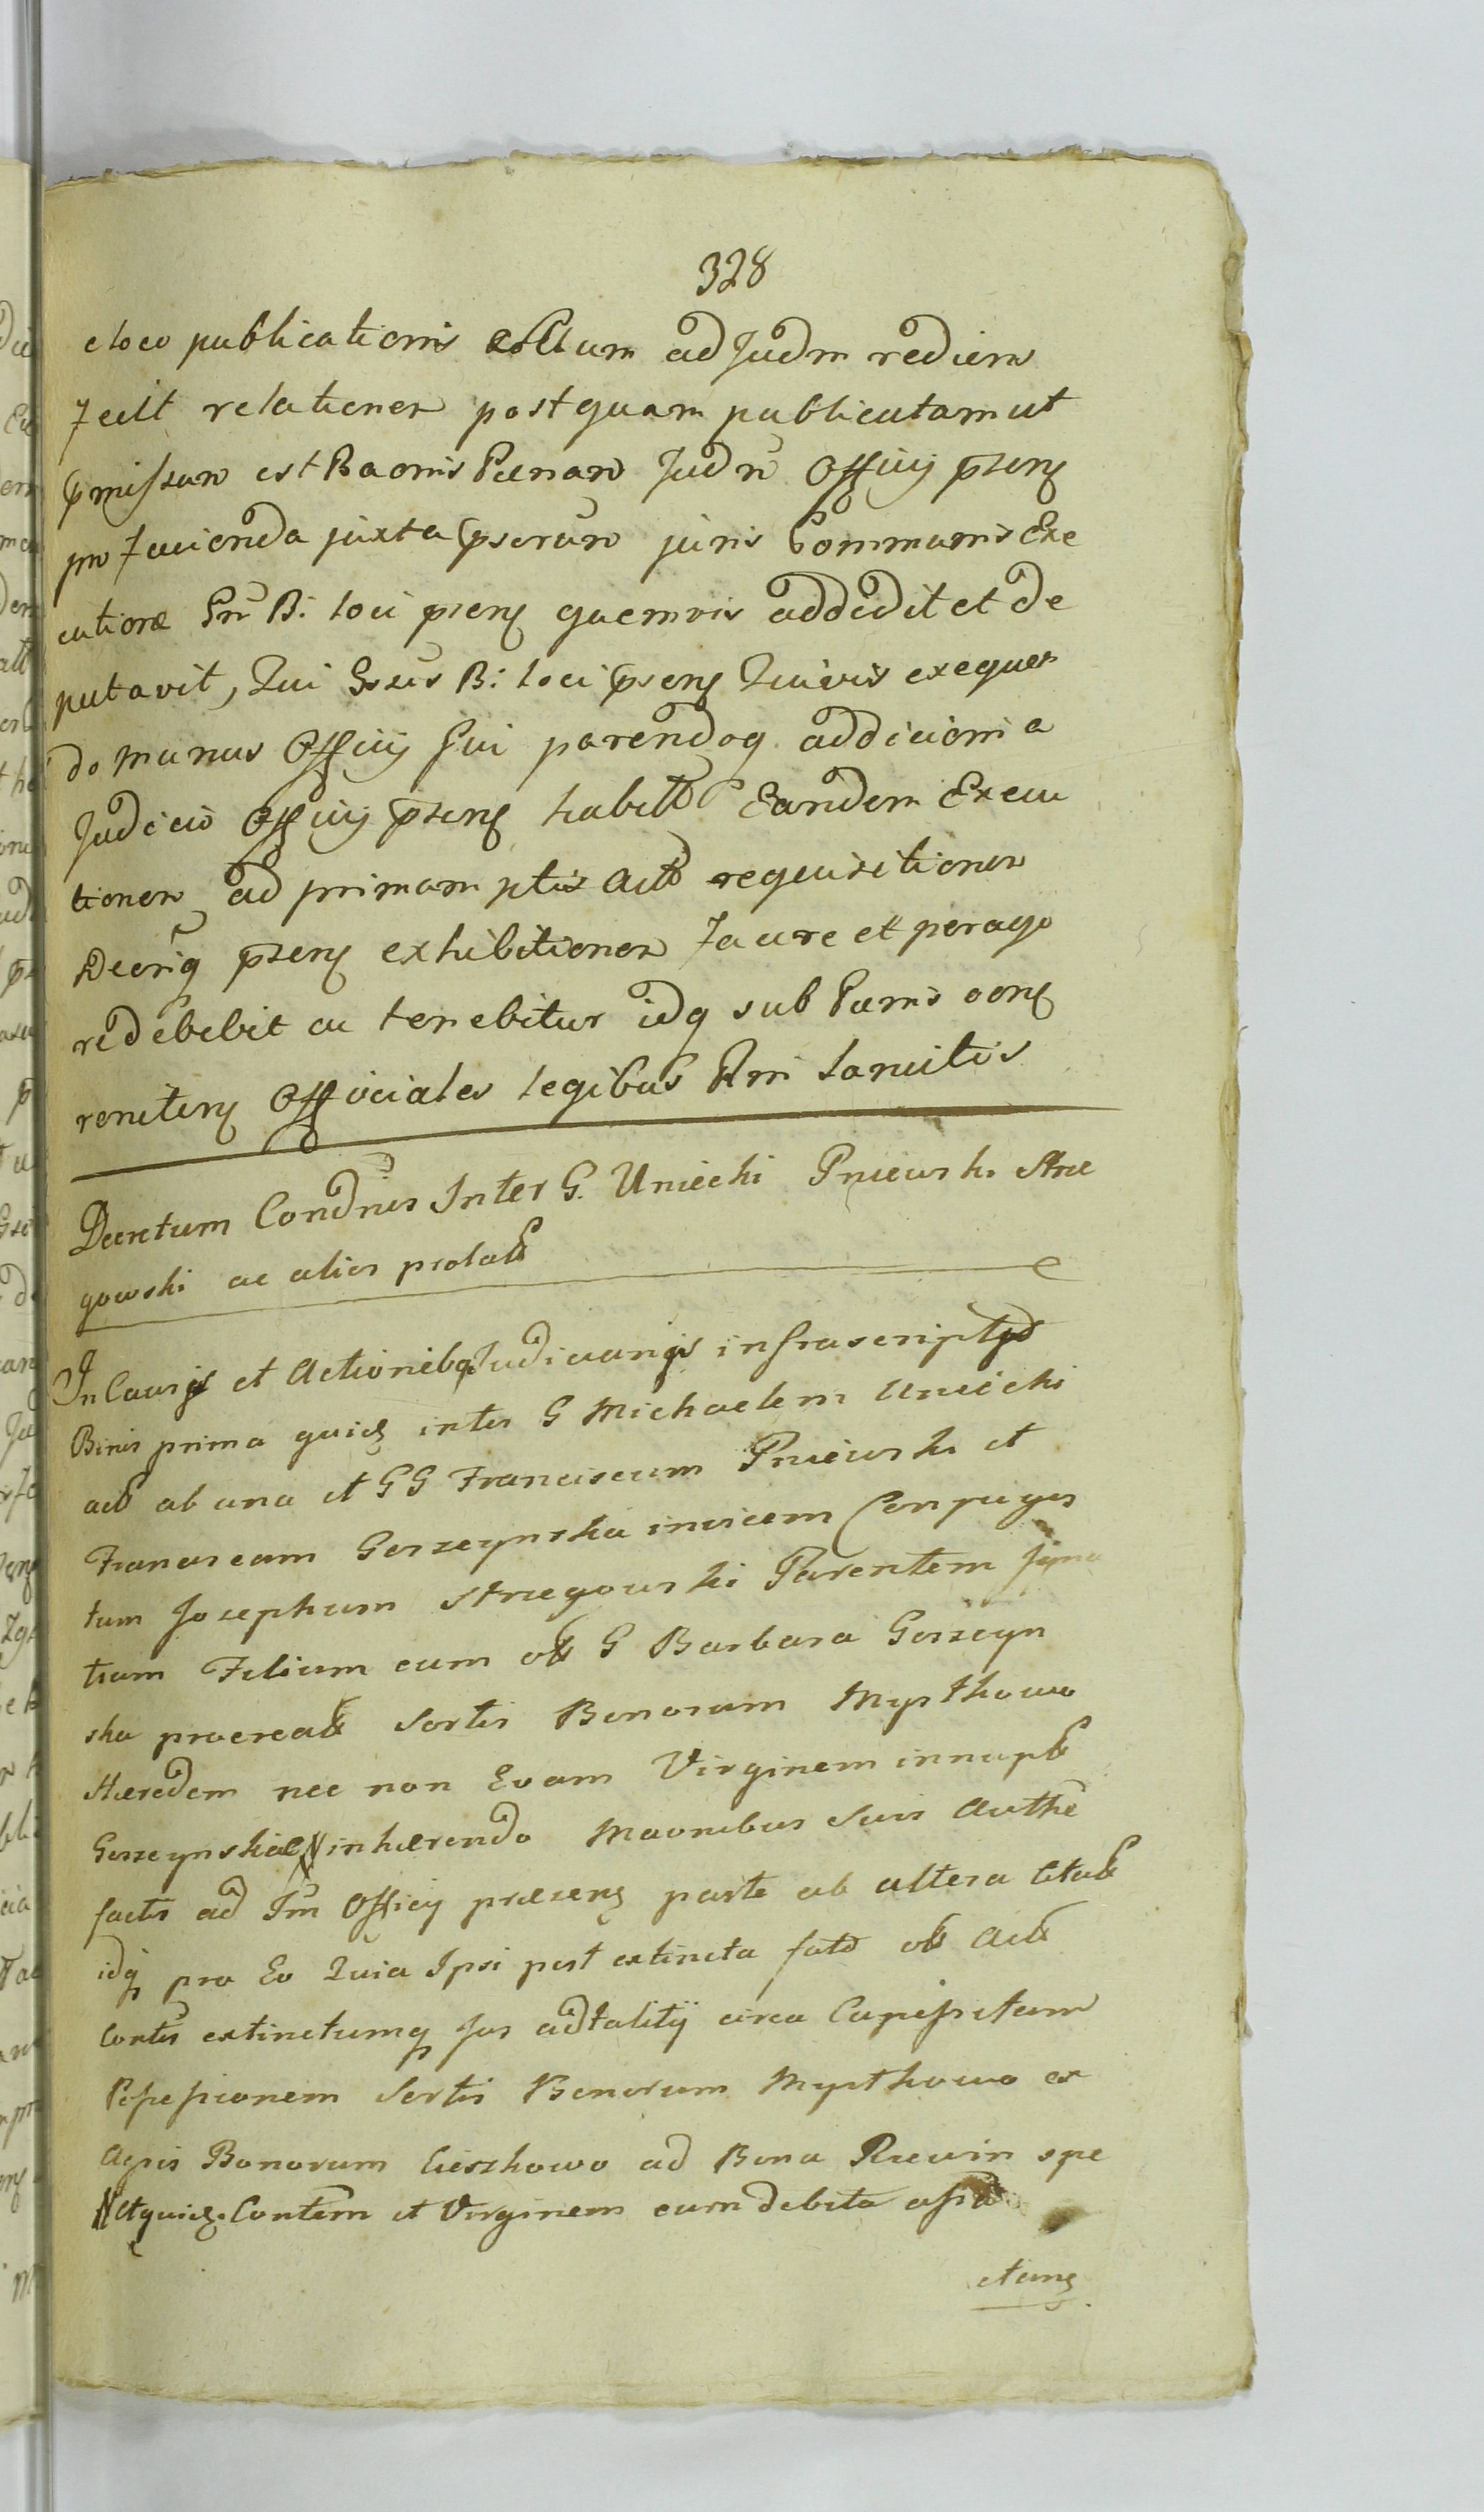 328
e loco publicationis ad Judm rediens
fecit relationem postquam publicatam ut
pmissum est Baonis Pænam Judm Officij psens
pro facienda juxta psorum juris Communis Exe
cutione Grm B: loci psens quemvis addidit et de
putavit, Qui Gsus B: loci psens Quivis exequen
do munus Officij sui parendoq addicioni a
Judicio Officij psens habit Eandem Execu
tionem ad primam ptis Act requisitionem
Decriq psens exhibitionem facere et perage
re debebit ac tenebitur idq sub Pænis
renitens Officiales legibus Rni sancitis
Decretum Condnis Inter G. Uniechi Pniewski Strze
gowski ac alios prolat
In Causis et Actionibq Judicianis infrascriptis
Binis prima quid inter G Michaelem Uniechi
act ab una et GG Franciscum Pniewski et
Franciscam Gorzeynska invicem Conjuges
tum Josephum Strzegowski Parentem
Filium cum G Barbara Gorzeyn
ska procreat Sortis Bonorum Mysthowo
Hæredem nec non Evam Virginem innupt
Gorzeynskie inhærendo Maonibus Suis Authe
factis ad Jm Officij præsens parte ab altera Citat
idq pro Eo Quia Ipsi post extincta fata Act
Contis extinctumq Jus advtalitij circa Capessitam
Possessionem Sortis Bonorum Mysthowo ex
Agris Bonorum Cieszkowo ad Bona spe
Atquid. Contem et Virginem cum debita assia
ctans